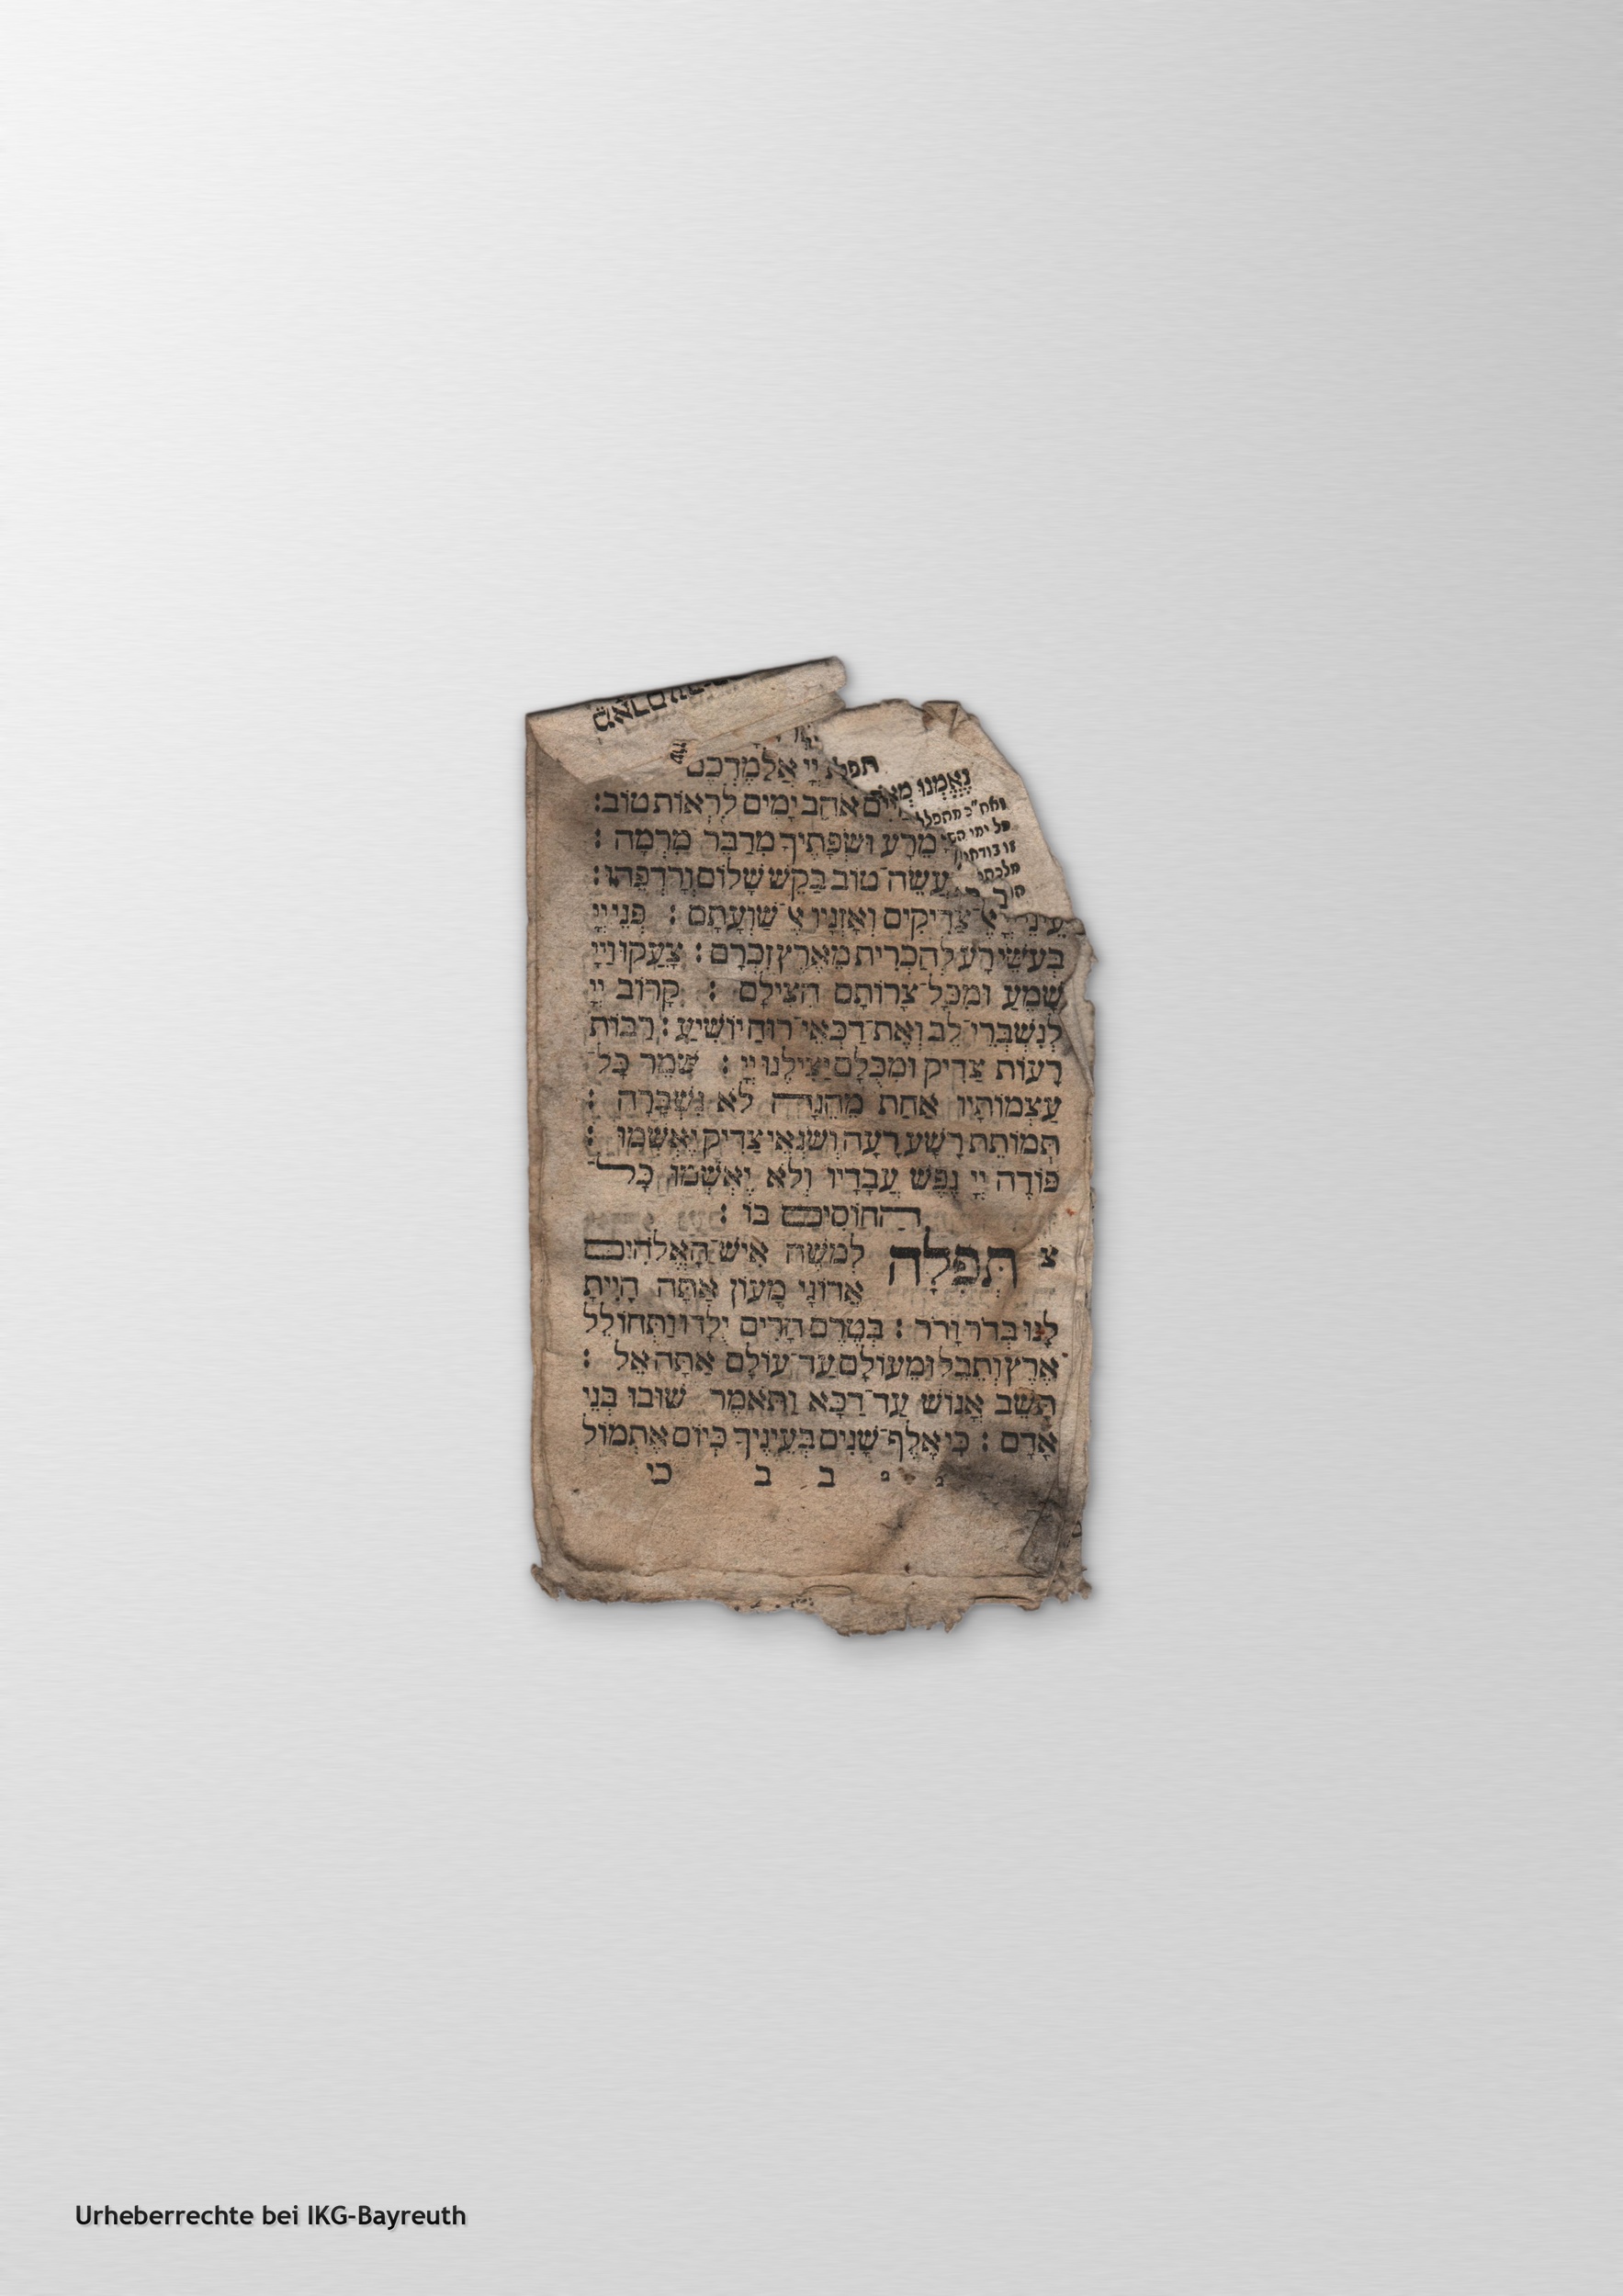 תפל
יְיָ אֲלַמֶּדְכֶם
נֶאֶמְנוּ מְאֹד
אֹהֵב יָמִים לִרְאוֹת טוֹב:
ואח"כ מתפלל
מֵרָע וּשְׂפָתֶיךָ מִדַּבֵּר מִרְמָה :
עֲשֵׂה־טוֹב בַּקֵּשׁ שָׁלוֹם וְרָדְפֵהוּ :
עֵינֵי יְיָ אֶל צַדִּיקִים וְאָזְנָיו אֶל־שַׁוְעָתָם : פְּנֵי יְיָ
בְּעֹשֵׂי רָע לְהַכְרִית מֵאֶרֶץ זִכְרָם : צָעֲקוּ וַיְיָ
שָׁמֵעַ וּמִכָּל־צָרוֹתָם הִצִּילָם : קָרוֹב יְיָ
לְנִשְׁבְּרֵי־לֵב וְאֶת־דַּכְּאֵי־רוּחַ יוֹשִׁיעַ : רַבּוֹת
רָעוֹת צַדִּיק וּמִכֻּלָּם יַצִּילֶנּוּ יְיָ : שֹׁמֵר כָּל־
עַצְמוֹתָיו אַחַת מֵהֵנָּה לֹא נִשְׁבָּרָה :
תְּמוֹתֵת רָשָׁע רָעָה וְשֹׂנְאֵי צַדִּיק יֶאְשָׁמוּ :
פּוֹדֶה יְיָ נֶפֶשׁ עֲבָדָיו וְלֹא יֶאְשְׁמוּ כָּל־
הַחוֹסִים בּוֹ :
צ תְּפִלָּה לְמֹשֶׁה אִישׁ־הָאֱלֹהִים
אֲדֹנָי מָעוֹן אַתָּה הָיִיתָ
לָּנוּ בְּדֹר וָדֹר : בְּטֶרֶם הָרִים יֻלָּדוּ וַתְּחוֹלֵל
אֶרֶץ וְתֵבֵל וּמֵעוֹלָם עַד־עוֹלָם אַתָּה אֵל :
תָּשֵׁב אֱנוֹשׁ עַד־דַּכָּא וַתֹּאמֶר שׁוּבוּ בְנֵי
אָדָם : כִּי אֶלֶף־שָׁנִים בְּעֵינֶיךָ כְּיוֹם אֶתְמוֹל
ב ב כי
Urheberrechte bei IKG-Bayreuth